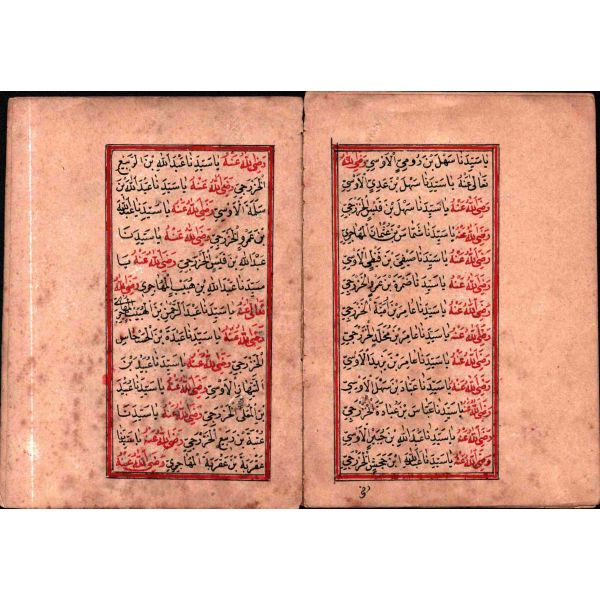 يا سيدنا سهل بن رومي الاوسي رضى الله
تعالى عنه يا سيدنا سهل بن عدي الاوسي
رضى الله عنه يا سيدنا سهل بن قيس الخزرجي
رضى الله عنه يا سيدنا شماس بن عثمان المهاجري
رضى الله عنه يا سيدنا صيفي بن قيظي الاوسي
رضى الله عنه يا سيدنا ضمرة بن عمرو الخزرجي
رضى الله عنه يا سيدنا عامر بن امية الخزرجي
رضى الله عنه يا سيدنا عامر بن مخلد الخزرجي
رضى الله عنه يا سيدنا عامر بن يزيد الاوسي
رضى الله عنه يا سيدنا عباد بن سهل الاوسي
رضى الله عنه يا سيدنا عباس بن عبادة الخزرجي
رضى الله عنه يا سيدنا عبد الله بن جبير الاوسي
رضى الله عنه يا سيدنا عبد الله ابن جحش الخزرجي
رضى
رضى الله عنه يا سيدنا عبد الله بن الربيع
الخزرجي رضى الله عنه يا سيدنا عبد الله بن
سلمة الاوسي رضى الله عنه يا سيدنا عبد الله
بن عمرو الخزرجي رضى الله عنه يا سيدنا
عبد الله بن قيس الخزرجي رضى الله عنه يا
سيدنا عبد الله بن هبيب المهاجري رضى الله
تعالى عنه يا سيدنا عبد الرحمن بن الهبيب
رضى الله عنه يا سيدنا عبدة بن الحسحاس
الخزرجي رضى الله عنه يا سيدنا عبيد بن
التيهان الاوسي رضى الله عنه يا سيدنا عبيد
بن المعلى الخزرجي رضى الله عنه يا سيدنا
عتبة بن ربيع الخزرجي رضى الله عنه يا سيدنا
عقربة بن عقربة المهاجري رضى الله عنه